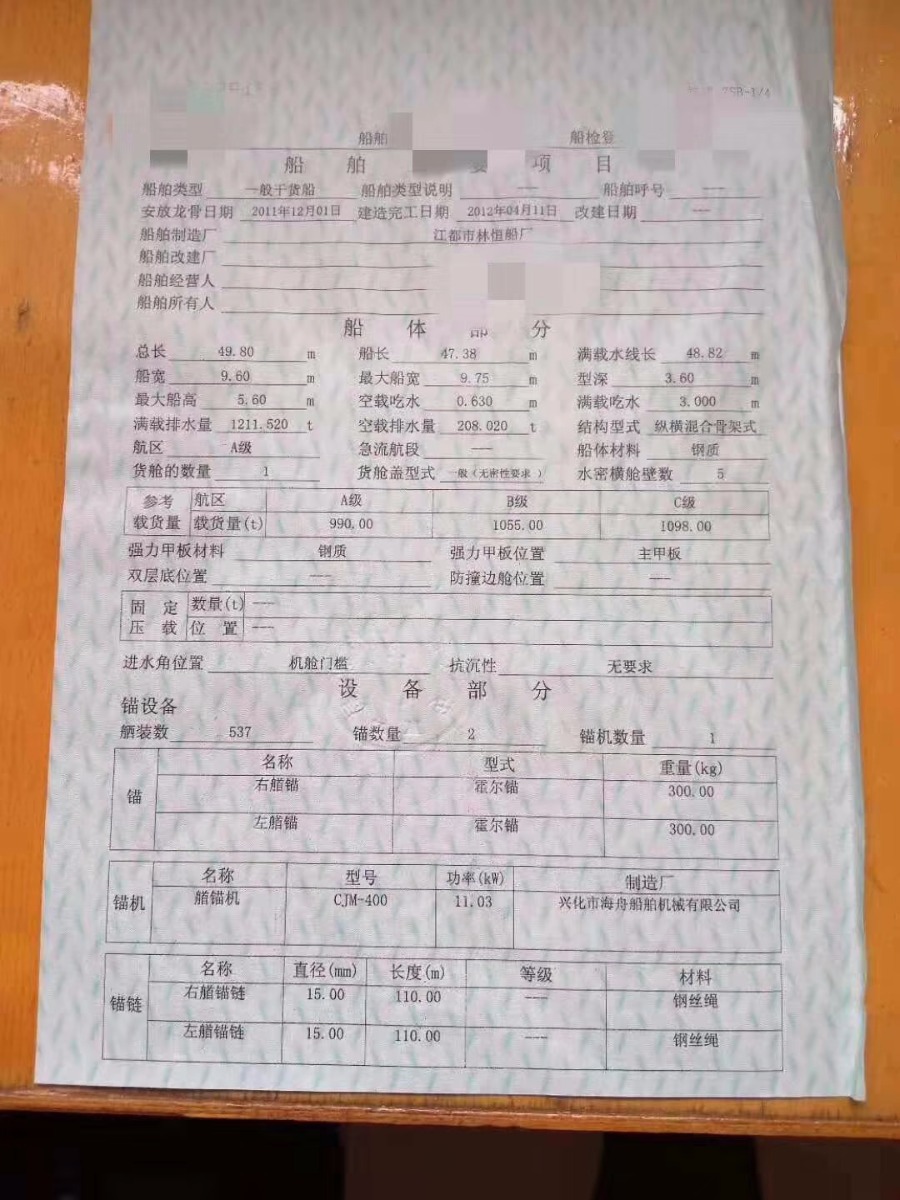 船舶 船检登
船 舶 要 项 目
船舶类型 一般干货船 船舶类型说明 --- 船舶呼号 ---
安放龙骨日期 2011年12月01日 建造完工日期 2012年04月11日 改建日期 ---
船舶制造厂 江都市林恒船厂
船舶改建厂
船舶经营人
船舶所有人
船 体 部 分
总长 49.80 m 船长 47.38 m 满载水线长 48.82 m
船宽 9.60 m 最大船宽 9.75 m 型深 3.60 m
最大船高 5.60 m 空载吃水 0.630 m 满载吃水 3.000 m
满载排水量 1211.520 t 空载排水量 208.020 t 结构型式 纵横混合骨架式
航区 A级 急流航段 --- 船体材料 钢质
货舱的数量 1 货舱盖型式 一般（无密性要求） 水密横舱壁数 5
参考 航区 A级 B级 C级
载货量 载货量(t) 990.00 1055.00 1098.00
强力甲板材料 钢质 强力甲板位置 主甲板
双层底位置 --- 防撞边舱位置 ---
固 定 数量(t) ---
压 载 位 置 ---
进水角位置 机舱门槛 抗沉性 无要求
设 备 部 分
锚设备
舾装数 537 锚数量 2 锚机数量 1
名称 型式 重量(kg)
锚 右艏锚 霍尔锚 300.00
左艏锚 霍尔锚 300.00
名称 型号 功率(kW) 制造厂
锚机 艏锚机 CJM-400 11.03 兴化市海舟船舶机械有限公司
名称 直径(mm) 长度(m) 等级 材料
锚链 右艏锚链 15.00 110.00 --- 钢丝绳
左艏锚链 15.00 110.00 --- 钢丝绳